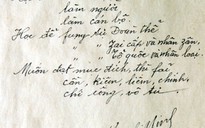 làm người
làm cán bộ.
Học để phụng sự Đoàn thể
" " giai cấp và nhân dân,
" " Tổ quốc và nhân loại.
Muốn đạt mục đích, thì phải
cần, kiệm, liêm, chính,
chí công, vô tư.
Minh